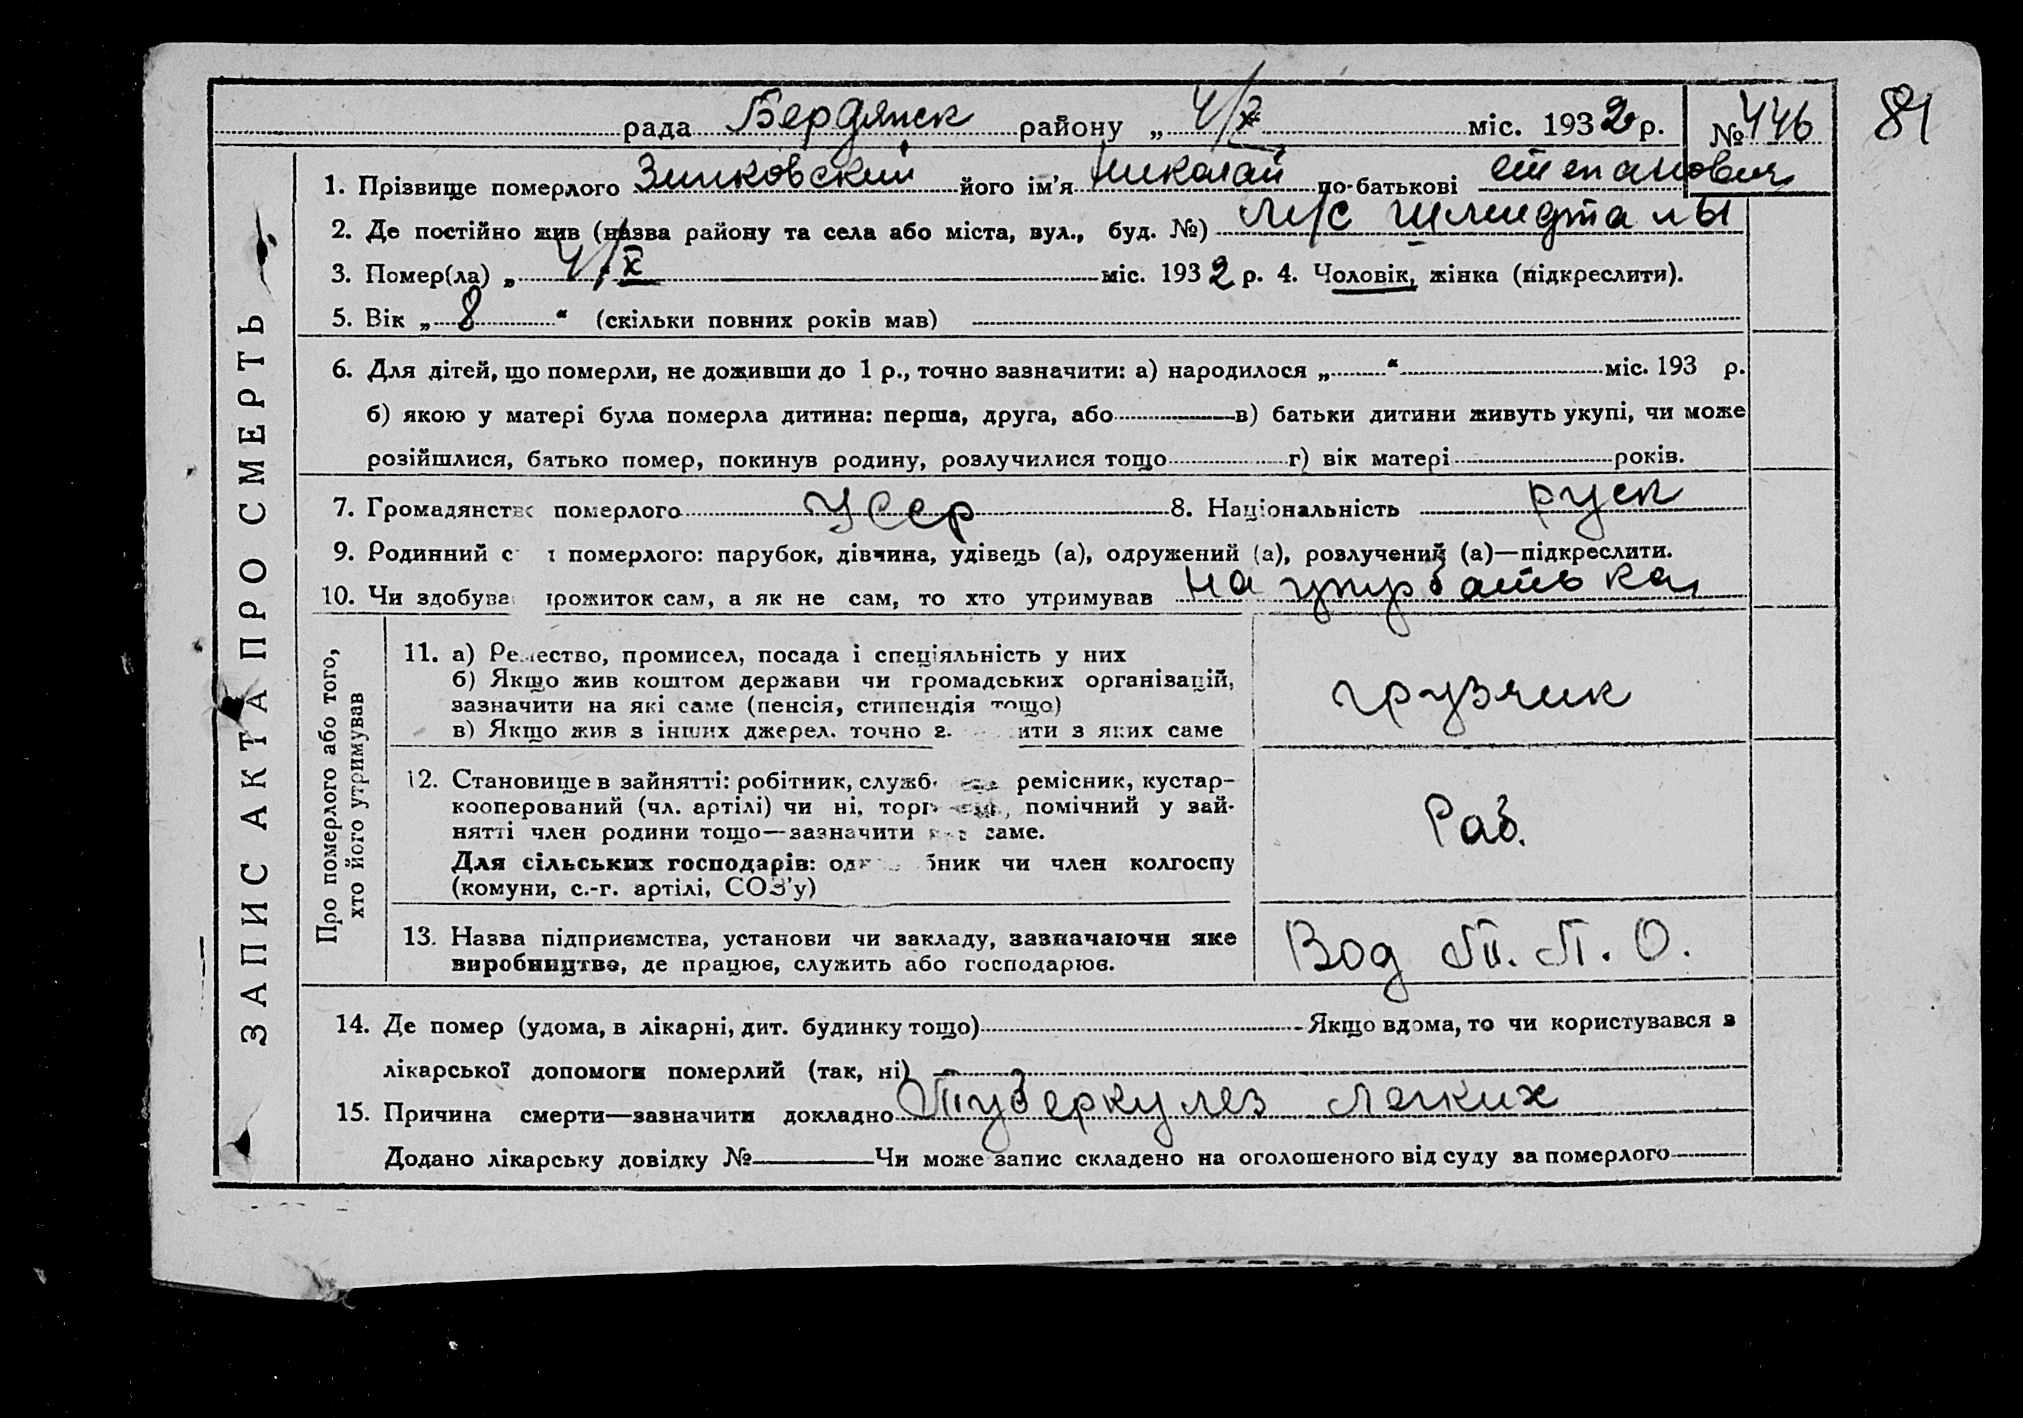 рада Бердянск району „ 4/X міс. 1932 р. № 446
81
1. Прізвище померлого Зинковский його ім'я Николай по-батькові Степанович
2. Де постійно жив (назва району та села або міста, вул., буд. №)
3. Помер(ла) „ 4/X міс. 1932 р. 4. Чоловік, жінка (підкреслити).
5. Вік „ 8 “ (скільки повних років мав)
6. Для дітей, що померли, не доживши до 1 р., точно зазначити: а) народилося „ “ міс. 193 р.
б) якою у матері була померла дитина: перша, друга, або в) батьки дитини живуть укупі, чи може
розійшлися, батько помер, покинув родину, розлучилися тощо г) вік матері років.
7. Громадянство померлого УССР 8. Національність руск
9. Родинний с т померлого: парубок, дівчина, удівець (а), одружений (а), розлучений (а)—підкреслити.
10. Чи здобува прожиток сам, а як не сам, то хто утримував на ижд батька
ЗАПИС АКТА ПРО СМЕРТЬ
Про померлого або того,
хто його утримував
11. а) Ремество, промисел, посада і спеціяльність у них
б) Якщо жив коштом держави чи громадських організацій,
зазначити на які саме (пенсія, стипендія тощо)
в) Якщо жив з інших джерел, точно з ити з яких саме
грузчик
12. Становище в зайнятті: робітник, служб ремісник, кустар-
кооперований (чл. артілі) чи ні, торг помічний у зай-
нятті член родини тощо—зазначити саме.
Для сільських господарів: од бник чи член колгоспу
(комуни, с.-г. артілі, СОЗ'у)
Раб.
13. Назва підприємства, установи чи закладу, зазначаючи яке
виробництво, де працює, служить або господарює.
Вод Т. П. О.
14. Де помер (удома, в лікарні, дит. будинку тощо) Якщо вдома, то чи користувався з
лікарської допомоги померлий (так, ні)
15. Причина смерти—зазначити докладно Туберкулез легких
Додано лікарську довідку № Чи може запис складено на оголошеного від суду за померлого